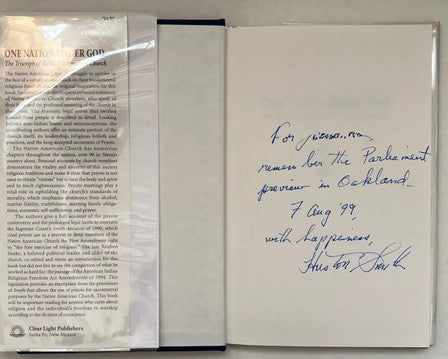 $24.95
ONE NATION UNDER GOD
The Triumph of the Native American Church
The Native American Church's struggle to survive in
the face of a
religious
book.
of Native American Church members, who speak of
their
and the profound meaning of the church in
their lives. The dramatic, legal events that swirled
around these people is described in detail. Looking
beyond non-Indian biases and misconceptions, the
contributing authors offer an intimate portrait of the
church itself, its leadership, religious beliefs and
practices, and the long-accepted sacrament of Peyote.
The Native American Church has numerous
chapters throughout the nation, over 90 in Navajo
country alone. Personal accounts by church members
demonstrate the vitality and sincerity of this ancient
religious tradition and make it clear that peyote is not
used to obtain "visions" but to heal the body and spirit
and to teach righteousness. Peyote meetings play a
vital role in upholding the church's standards of
morality, which emphasize abstinence from alcohol,
marital fidelity, truthfulness, meeting family obliga-
tions, economic self-sufficiency, and prayer.
The authors give a full account of the peyote
controversy and the prolonged legal battle to overturn
the Supreme Court's Smith decision of 1990, which
cited peyote use as a pretext to deny members of the
Native American Church the First Amendment right
to "the free exercise of religion." The late Reuben
Snake, a beloved political leader and elder of the
church, co-edited and wrote an introduction for this
book but did not live to see the completion of what he
worked so hard for: the passage of the American Indian
Religious Freedom Act Amendments of 1994. This
legislation provides an exemption from the provisions
of Smith that allows the use of peyote for sacramental
purposes by the Native American Church. This book
will be important reading for anyone who cares about
religion and the individual's freedom to worship
according to the dictates of conscience.
Clear Light Publishers
Santa Fe, New Mexico
For
remember the Parliament
preview in Oakland
7 Aug '99,
with happiness,
Huston Smith